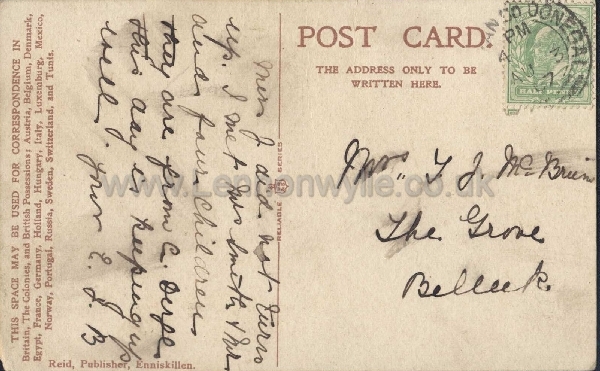 POST CARD.
THE ADDRESS ONLY TO BE
WRITTEN HERE.
CO DONEGAL
PM
HALF PENNY
THIS SPACE MAY BE USED FOR CORRESPONDENCE IN
Britain, The Colonies, and British Possessions; Austria, Belgium, Denmark,
Egypt, France, Germany, Holland, Hungary, Italy, Luxemburg, Mexico,
Norway, Portugal, Russia, Sweden, Switzerland, and Tunis.
Miss J did not turn
up. I met Mrs Smith & Mr
and four children
they are from C.
this day is keeping up
well. Your E. J. B
RELIABLE SERIES
Mrs. T. J. McBrien
The Grove
Belleek
Reid, Publisher, Enniskillen.
www.Lennonwylie.co.uk